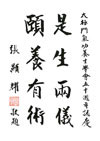 太極門氣功養生學會五十週年誌慶
是生兩儀
頤養有術
張顯耀 敬題